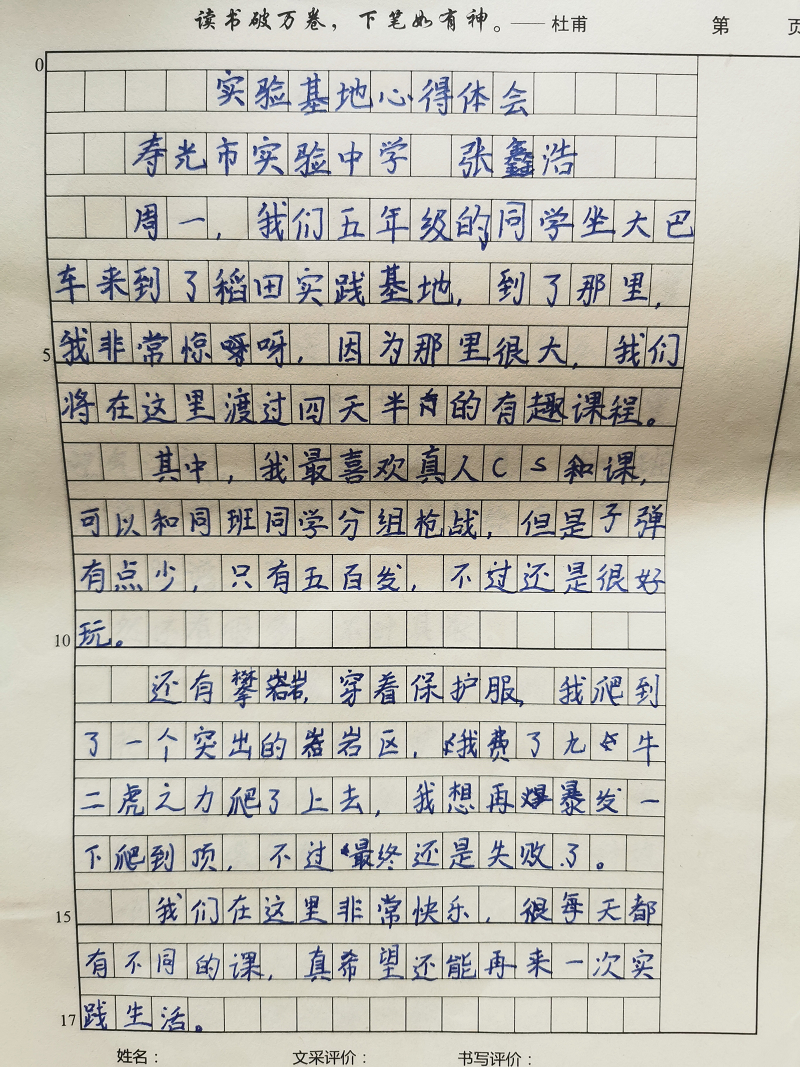 读书破万卷，下笔如有神。——杜甫 第 页
0
实验基地心得体会
寿光市实验中学 张鑫浩
周一，我们五年级的同学坐大巴
车来到了稻田实践基地，到了那里，
5 我非常惊呀，因为那里很大，我们
将在这里渡过四天半的有趣课程。
其中，我最喜欢真人CS和课，
可以和同班同学分组枪战，但是子弹
有点少，只有五百发，不过还是很好
10 玩。
还有攀岩，穿着保护服，我爬到
了一个突出的岩区，我费了九牛
二虎之力爬了上去，我想再暴发一
下爬到顶，不过最终还是失败了。
15 我们在这里非常快乐，很每天都
有不同的课，真希望还能再来一次实
17 践生活。
姓名： 文采评价： 书写评价：